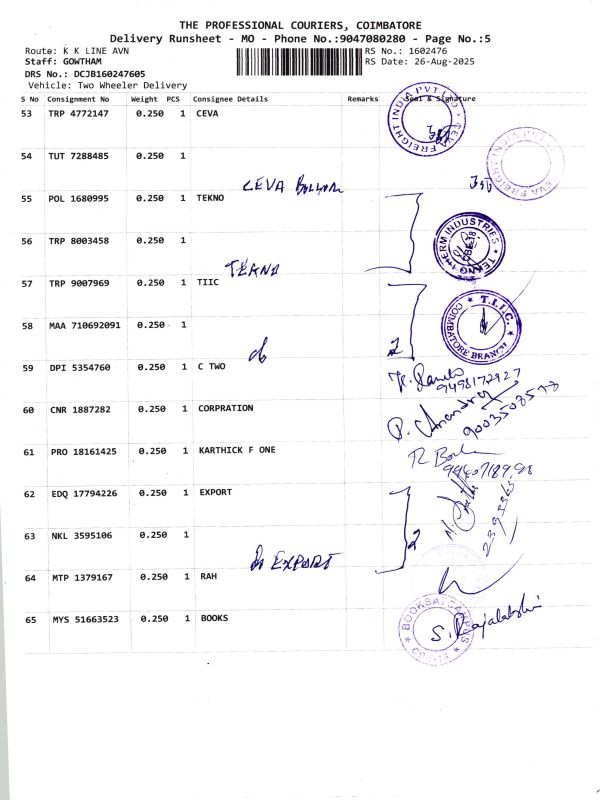 THE PROFESSIONAL COURIERS, COIMBATORE
Delivery Runsheet - MO - Phone No.:9047080280 - Page No.:5
Route: K K LINE AVN RS No.: 1602476
Staff: GOWTHAM RS Date: 26-Aug-2025
DRS No.: DCJB160247605
Vehicle: Two Wheeler Delivery
S No Consignment No Weight PCS Consignee Details Remarks Seal & Signature
53 TRP 4772147 0.250 1 CEVA
CEVA FREIGHT INDIA PVT LTD
54 TUT 7288485 0.250 1
CEVA FREIGHT INDIA PVT
CEVA
55 POL 1680995 0.250 1 TEKNO
56 TRP 8003458 0.250 1
TEKNO THERM INDUSTRIES
TEKNO
57 TRP 9007969 0.250 1 TIIC
T.I.I.C. COIMBATORE BRANCH
58 MAA 710692091 0.250 1
2
59 DPI 5354760 0.250 1 C TWO
9498172927
60 CNR 1887282 0.250 1 CORPRATION
9003508578
61 PRO 18161425 0.250 1 KARTHICK F ONE
62 EDQ 17794226 0.250 1 EXPORT
63 NKL 3595106 0.250 1
2
EXPORT
64 MTP 1379167 0.250 1 RAH
65 MYS 51663523 0.250 1 BOOKS
BOOKSATCAMPUS
S. Rajalakshmi